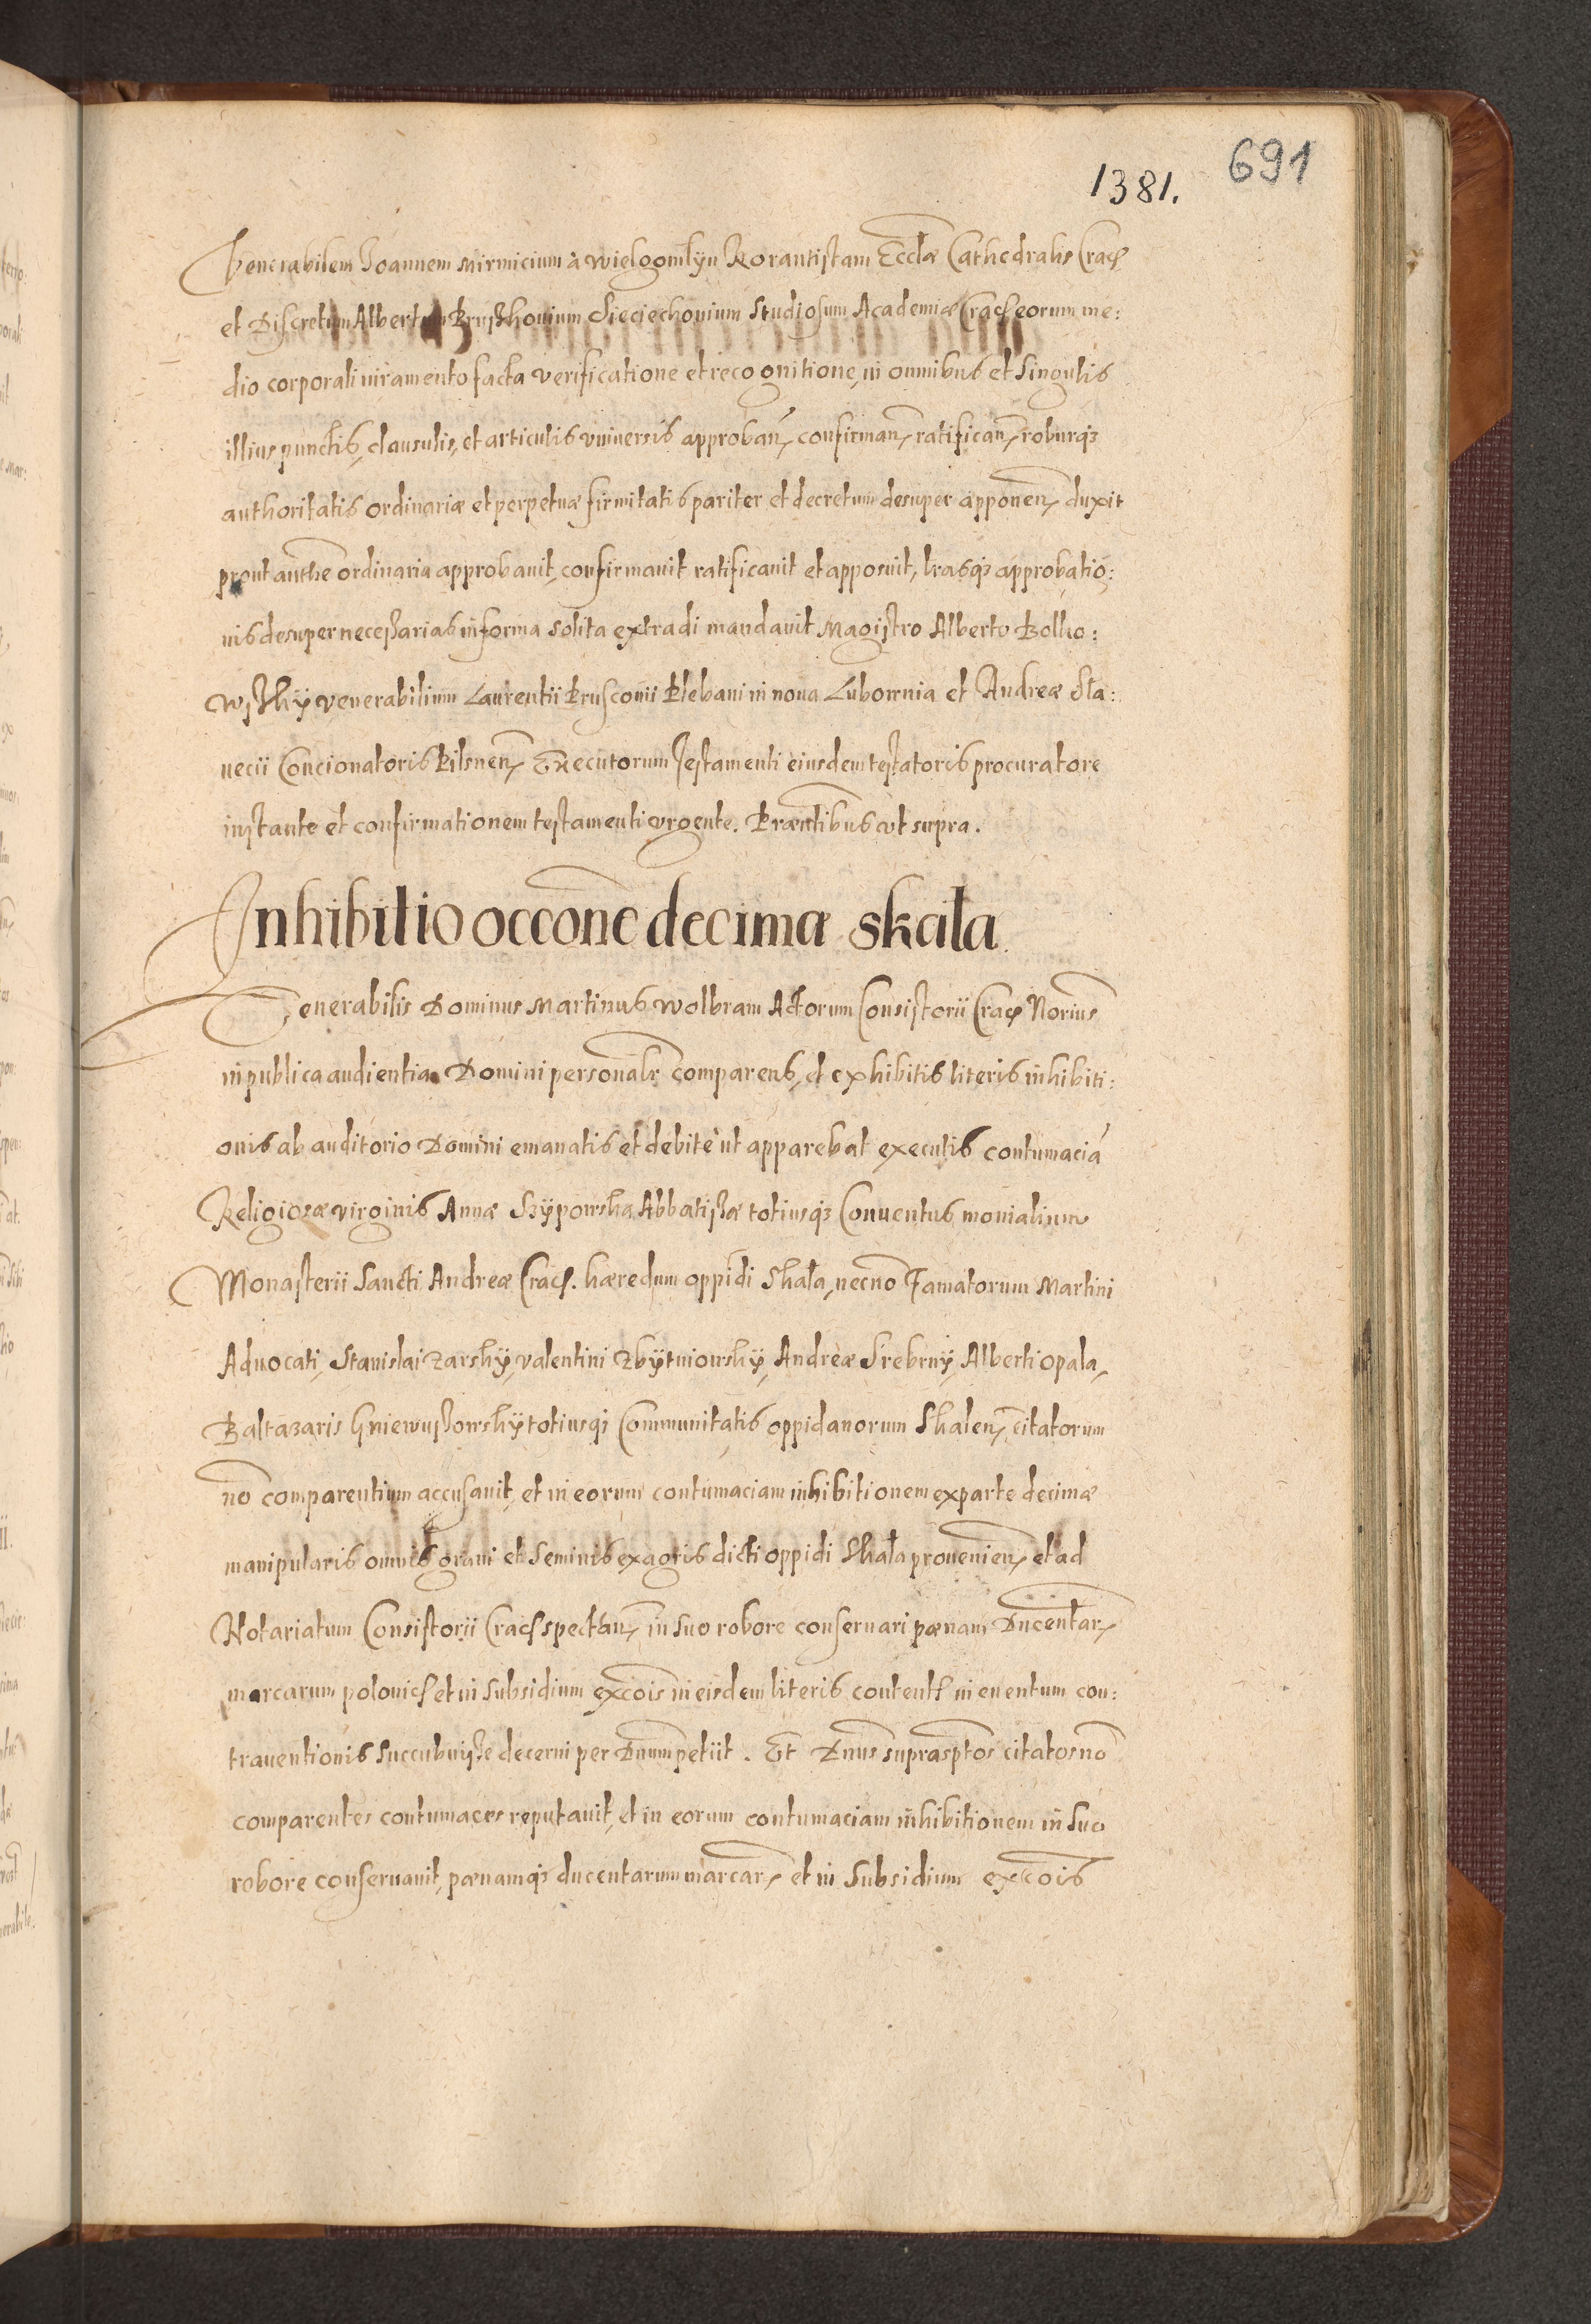 691
1381.
Venerabilem Joannem Mirmicium à Wielgomlÿn Rorantistam Eccłæ Cathedralis Crac
et Discretum Albertum Pruskhouium Sieciechouium Studiosum Academiæ Crac eorum me:
dio corporali iuramento facta verificatione et recognitione, in omnibus et singulis
illius punctis, clausulis, et articulis vniuersis approban, confirman, ratifican, roburqz
authoritatis ordinariæ et perpetuæ firmitatis pariter et decretum desuper apponen, duxit
prout authe ordinaria approbauit, confirmauit ratificauit et apposuit, lrasqz approbatio:
nis desuper necessarias in forma solita extradi mandauit Magistro Alberto Bolko:
wskÿ venerabilium Laurentii Prusconii Plebani in noua Lubownia et Andreæ Sta:
necii Concionatoris Pilsnen, Executorum Testamenti eiusdem testatoris procuratore
instante et confirmationem testamenti vrgente. Præntibus vt supra.
Inhibitio occone decimæ Skała
Venerabilis Dominus Martinus Wolbram Actorum Consistorii Crac Norius
in publica audientia Domini personalr comparens, et exhibitis literis inhibiti:
onis ab auditorio Domini emanatis et debitè ut apparebat executis contumaciã
Religiosæ virginis Annæ Szÿpowska Abbatissæ totiusqz Conuentus monialium
Monasterii Sancti Andreæ Crac. hæredum oppidi Skała, necno Famatorum Martini
Aduocati, Stanislai Zarskÿ, Valentini Zbÿtniowskÿ, Andreæ Srebrnÿ, Alberti Opala,
Baltazaris Gniewussowskÿ totiusqz Communitatis oppidanorum Skalen, citatorum
no comparentium accusauit, et in eorum contumaciam inhibitionem ex parte decimæ
manipularis omnis grani et seminis ex agris dicti oppidi Skała prouenien, et ad
Notariatum Consistorii Crac spectan, in suo robore conseruari pænam Ducentar,
marcarum polonic et in subsidium excois in eisdem literis content in euentum con:
trauentionis succubuisse decerni per Dnum petiit. Et Dnus suprasptos citatos no
comparentes contumaces reputauit, et in eorum contumaciam inhibitionem in suo
robore conseruauit, pænamqz ducentarum marcar, et in Subsidium excois